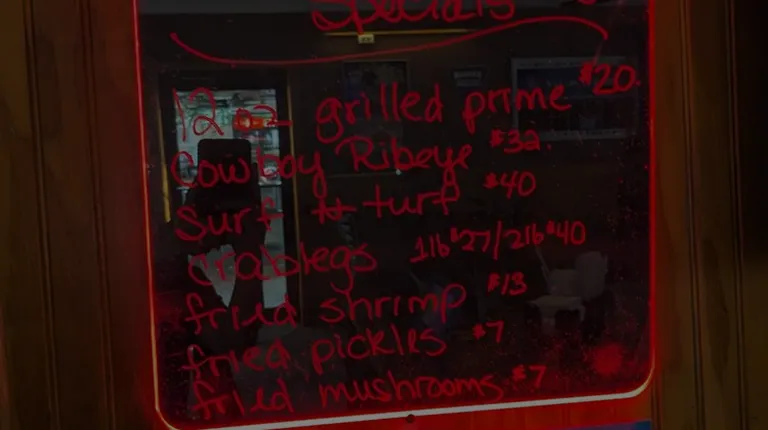 Specials
12 oz grilled prime $20.
Cowboy Ribeye $32.
Surf & turf $40
crablegs 1lb $27/2lb $40
fried shrimp $13
fried pickles $7
fried mushrooms $7